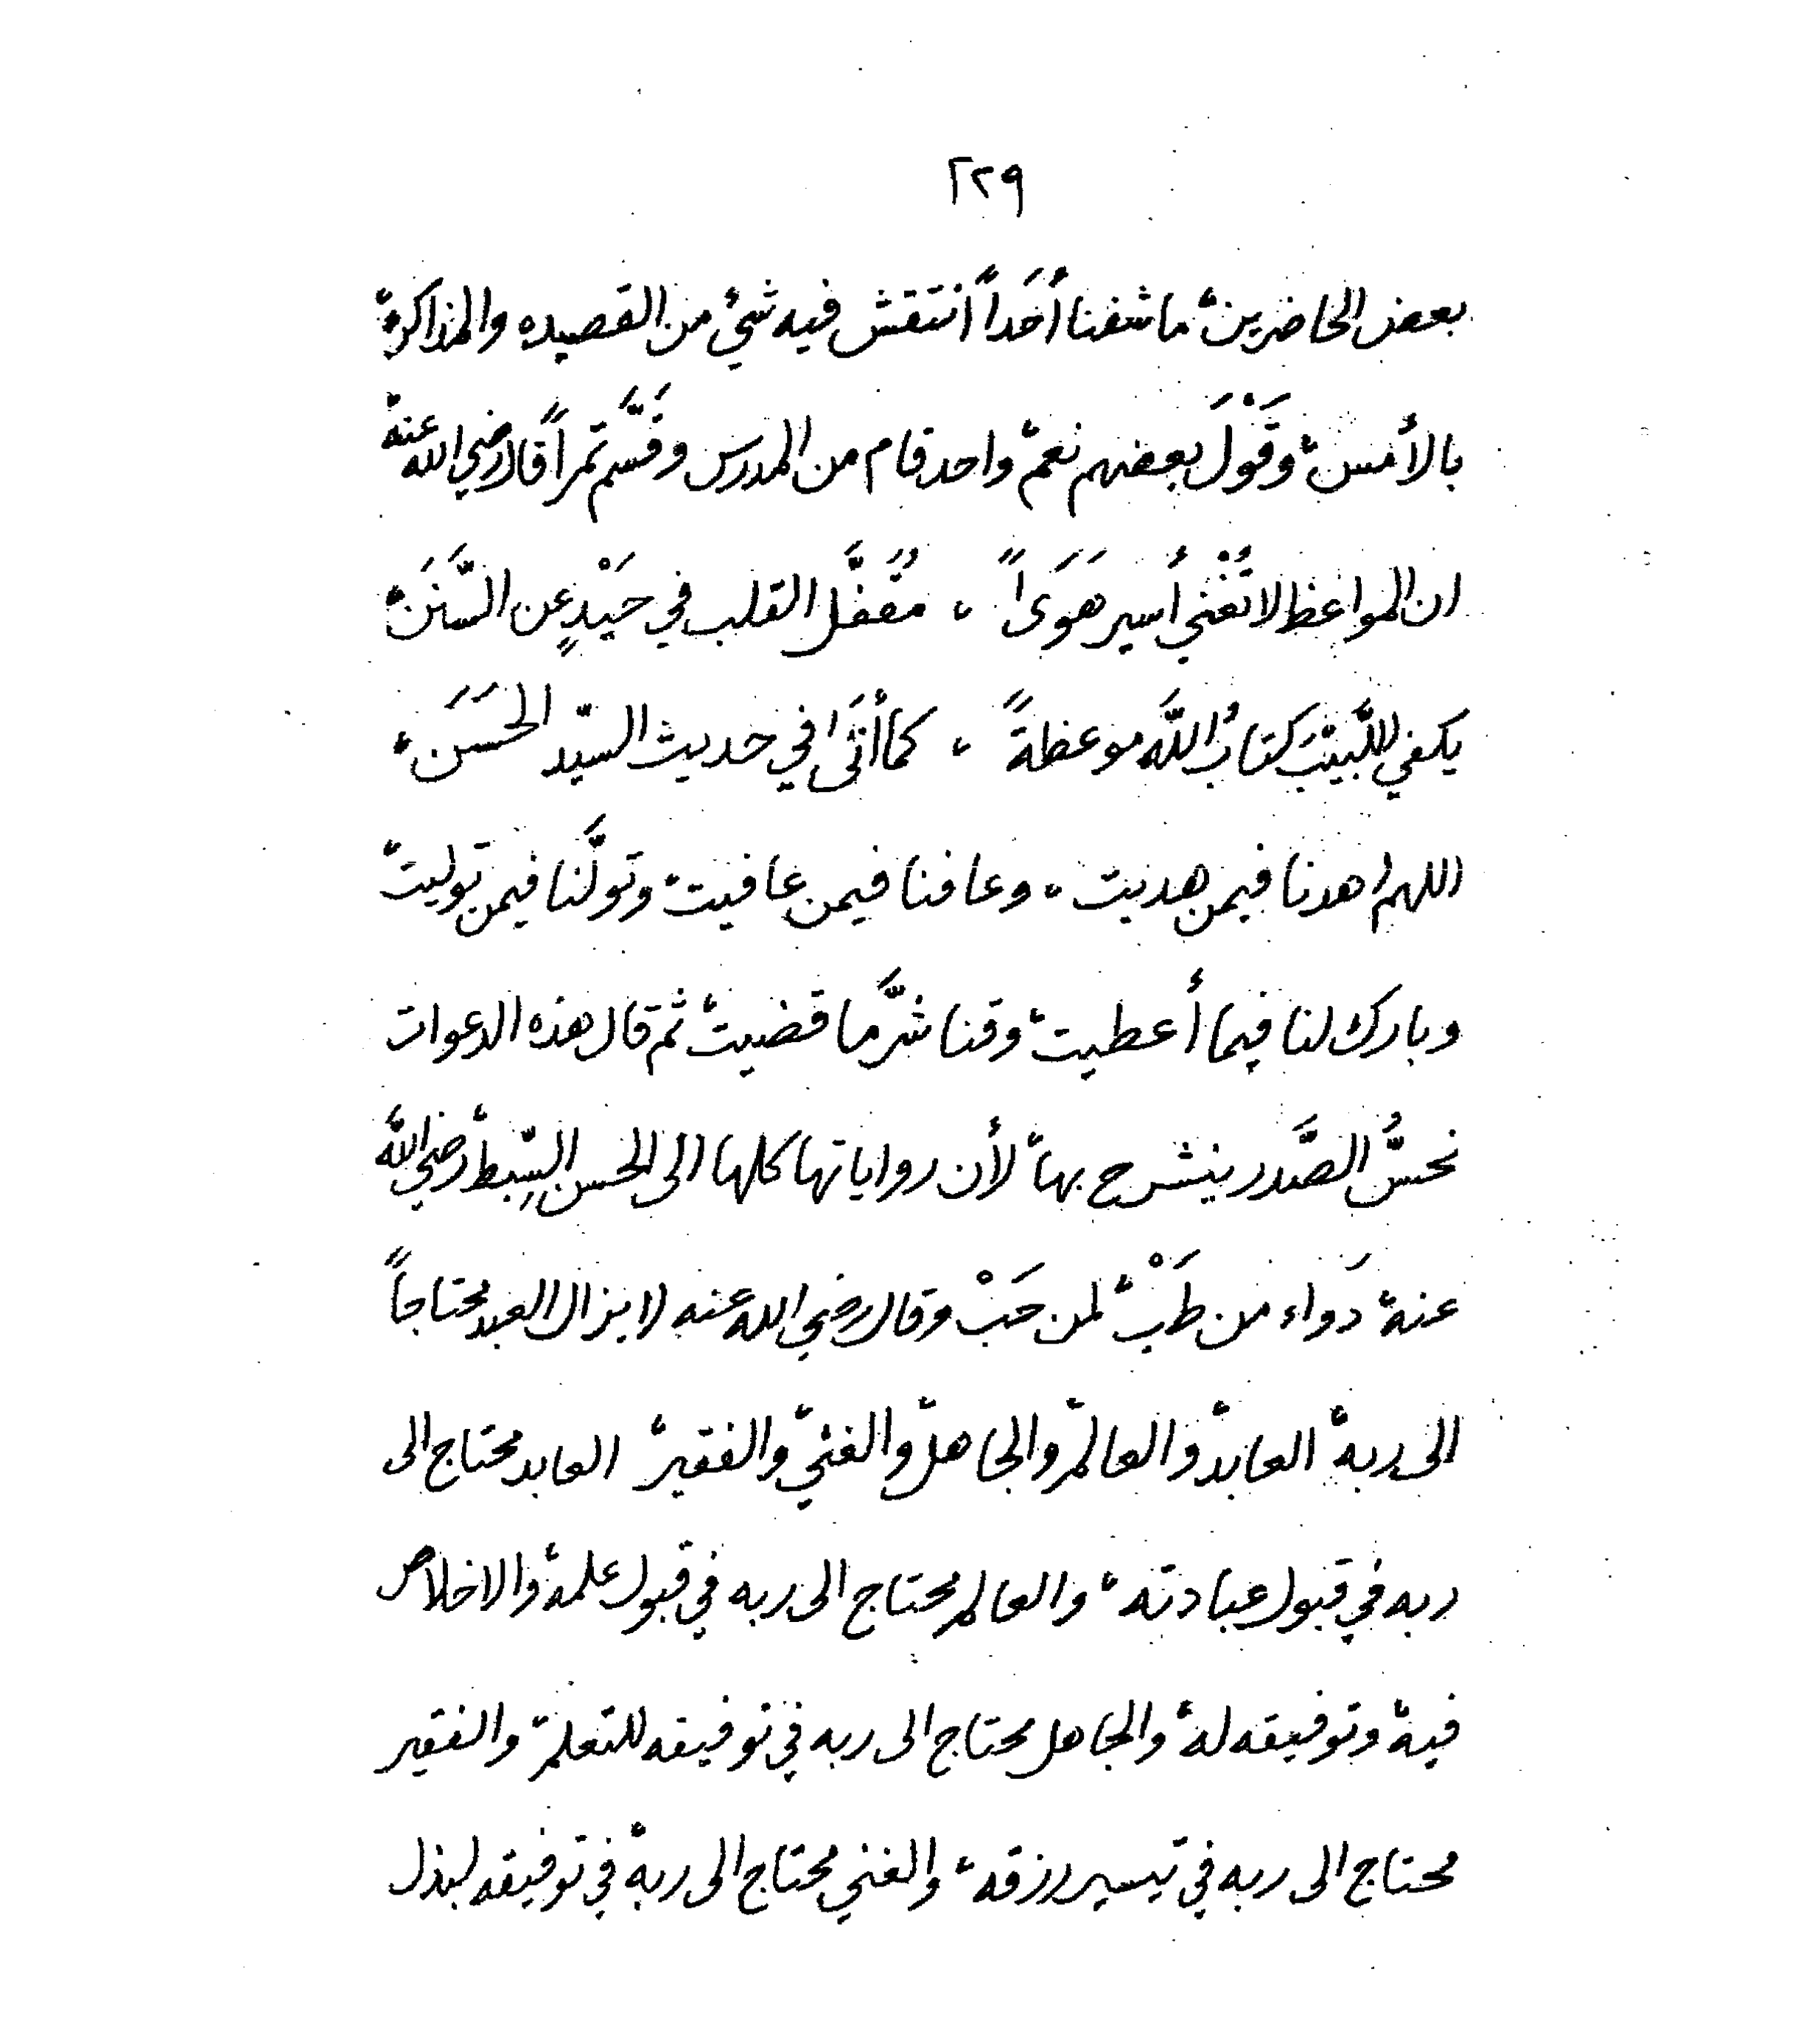 ٢٢٩
بعض الحاضرين، ما شفنا أَحَداً انتَقش فيه شيُ من القصيده والمذاكرة،
بالأمس، وقَوْلَ بعضهم نعم، واحد قام من المدرس وقَسَّم تمراً قال رضي الله عنه،
ان المواعظ لا تُغْني أسير هَوَىً ، مُقفَّل القلب في حَيْدٍ عن السَّنَن،
يكفي اللَّبيْبَ كتابُ اللَّه موعظةً ، كما أتَى في حديث السيّد الحَسَن،
اللهم اهدنا فيمن هديت، وعافنا فيمن عافيت، وتولَّنا فيمن توليت،
وبارك لنا فيما أعطيت، وقنا شرَّ ما قضيت، ثم قال هذه الدعوات
نحسُّ الصَّدر ينشرح بها، لأن رواياتها كلها الى الحسن السِّبط، رضي الله
عنه، دَواء من طَبْ، لمن حَبْ وقال رضي الله عنه لا يزال العبد محتاجاً
الى ربه، العابد، والعالم، والجاهل، والغني، والفقير، العابد محتاج الى
ربه في قبول عبادته، والعالم محتاج الى ربه في قبول علمه، والاخلاص
فيه، وتوفيقه له، والجاهل محتاج الى ربه في توفيقه للتعلم، والفقير
محتاج الى ربه في تيسير رزقه، والغني محتاج الى ربه، في توفيقه لبذل